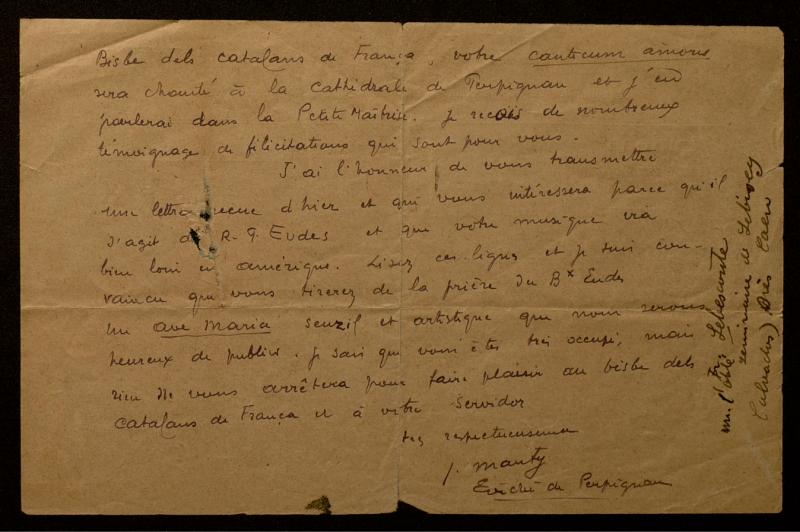 Bisbe dels catalans de França, votre canticum amoris
sera chanté à la Cathédrale de Perpignan et j'en
parlerai dans la Petite Maîtrise. Je reçois de nombreux
témoignage de félicitations qui sont pour vous.
J'ai l'honneur de vous transmettre
une lettre reçue d'hier et qui vous intéressera parce qu'il
s'agit d R. P. Eudes et que votre musique ira
bien loin en amérique. Lisez ces lignes et je suis con-
vaincu que vous tirerez de la prière du Bx Eudes
un ave maria et artistique que nous serons
heureux de publier. Je sais que vous êtes très occupé, mais
rien ne vous arrêtera pour faire plaisir au bisbe dels
catalans de França et à votre servidor
très respectueusement
J. Manty
Evêché de Perpignan
mr. l'abbé Lebesconte
séminaire de
Calvados) près Caen